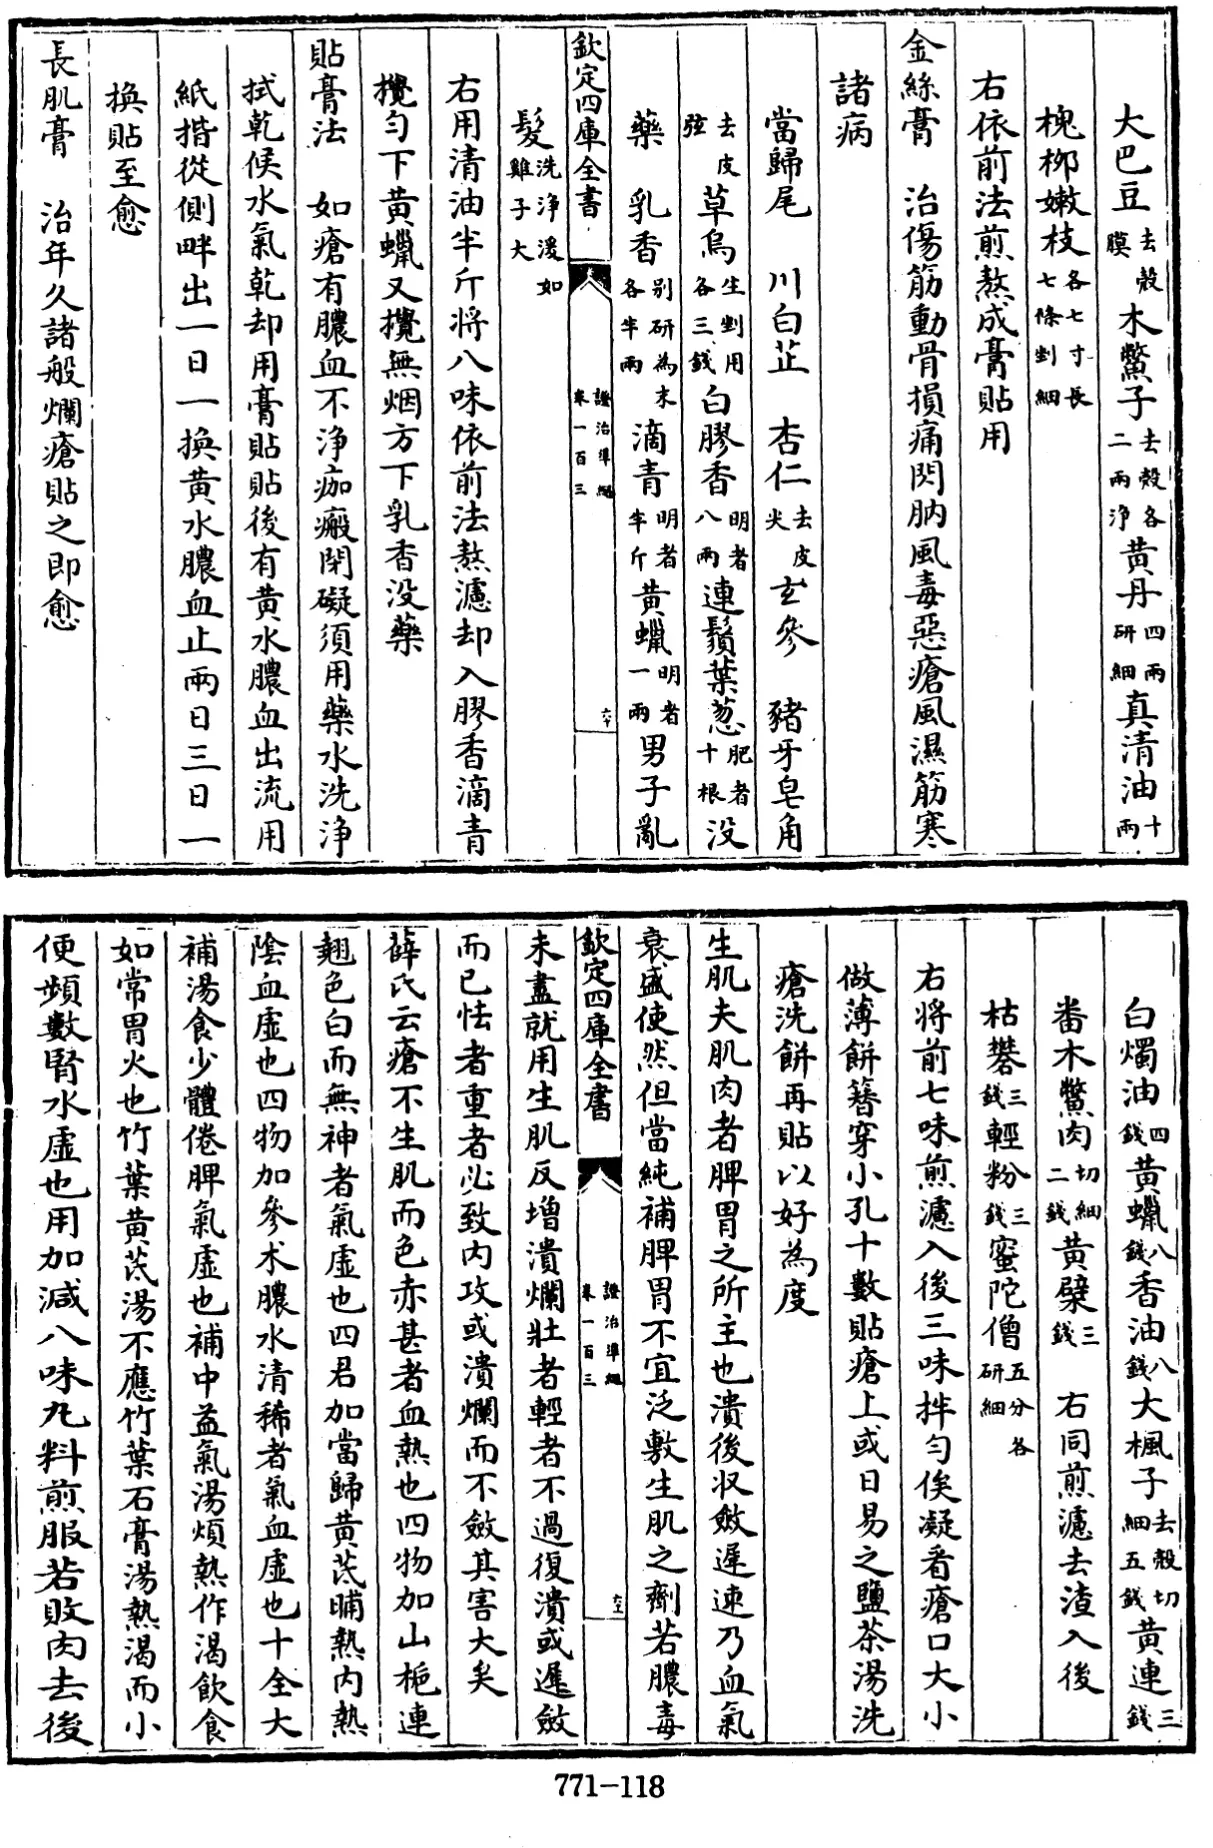 大巴豆去殻膜木鱉子去殻各二兩淨黄丹四兩研細真清油十兩
槐栁嫩枝各七寸長七條剉細
右依前法煎熬成膏貼用
金絲膏　治傷筋動骨損痛閃肭風毒惡瘡風濕筋寒
諸病
當歸尾　川白芷　杏仁去皮尖玄參　豬牙皂角
去皮弦草烏生剉用各三錢白膠香明者八兩連鬚葉葱肥者十根没
藥　乳香别研為末各半兩滴青明者半斤黄蠟明者一兩男子亂
欽定四庫全書　證治準繩卷一百三　六十
髮洗淨湲如雞子大
右用清油半斤將八味依前法熬濾却入膠香滴青
攪勻下黄蠟又攪無烟方下乳香没藥
貼膏法　如瘡有膿血不淨痂瘢閉礙須用藥水洗淨
拭乾候水氣乾却用膏貼貼後有黄水膿血出流用
紙揩從側畔出一日一換黄水膿血止兩日三日一
換貼至愈
長肌膏　治年久諸般爛瘡貼之即愈
白燭油四錢黄蠟八錢香油八錢大楓子去殻切細五錢黄連三錢
番木鱉肉切細二錢黄檗三錢　右同煎濾去渣入後
枯礬三錢輕粉三錢蜜陀僧五分各研細
右將前七味煎濾入後三味拌勻俟凝看瘡口大小
做薄餅簪穿小孔十數貼瘡上或日易之鹽茶湯洗
瘡洗餅再貼以好為度
生肌夫肌肉者脾胃之所主也潰後收斂遲速乃血氣
衰盛使然但當純補脾胃不宜泛敷生肌之劑若膿毒
欽定四庫全書　證治準繩卷一百三　六十一
未盡就用生肌反増潰爛壯者輕者不過復潰或遲斂
而已怯者重者必致内攻或潰爛而不斂其害大矣
薛氏云瘡不生肌而色赤甚者血熱也四物加山梔連
翹色白而無神者氣虛也四君加當歸黄芪晡熱内熱
陰血虛也四物加參术膿水清稀者氣血虛也十全大
補湯食少體倦脾氣虛也補中益氣湯煩熱作渇飲食
如常胃火也竹葉黄芪湯不應竹葉石膏湯熱渇而小
便頻數腎水虛也用加減八味丸料煎服若敗肉去後
771-118